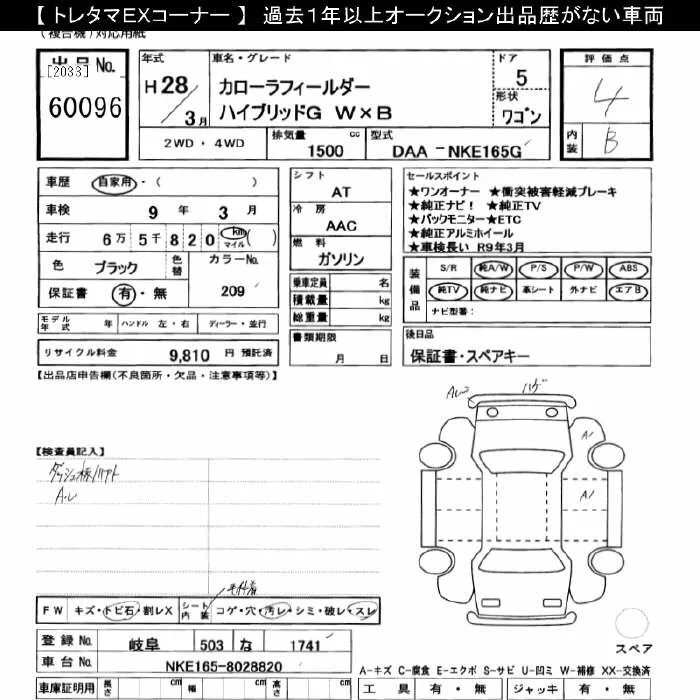 【 トレタマEXコーナー 】 過去1年以上オークション出品歴がない車両
(複合機)対応用紙
出品No.
[2033]
60096
年式
H 28/3月
車名・グレード
カローラフィールダー
ハイブリッドG W×B
ドア
5
形状
ワゴン
評価点
4
内装
B
2WD・4WD
排気量
1500
cc
型式
DAA -NKE165G
車歴 自家用・( )
車検 9年 3月
走行 6万 5千 8 2 0 km マイル ( )
色 ブラック 色替 カラーNo.
保証書 有・無 209
シフト
AT
冷房
AAC
燃料
ガソリン
乗車定員 名
積載量 kg
総重量 kg
セールスポイント
★ワンオーナー ★衝突被害軽減ブレーキ
★純正ナビ! ★純正TV
★バックモニター★ETC
★純正アルミホイール
★車検長い R9年3月
装備品
S/R 純A/W P/S P/W ABS
純TV 純ナビ 革シート 外ナビ エアB
ナビ型番:
モデル年式 年 ハンドル 左・右 ディーラー・並行
リサイクル料金 9,810 円 預託済
書類期限
月 日
後日品
保証書・スペアキー
【出品店申告欄(不良箇所・欠品・注意事項等)】
ハゲ
A1
A1
【検査員記入】
FW キズ・トビ石・割レX
シート内装 コゲ・穴・汚レ・シミ・破レ・スレ
登録No. 岐阜 503 な 1741
車台No. NKE165-8028820
車庫証明用 長さ cm 幅 cm 高さ cm
スペア
A-キズ C-腐食 E-エクボ S-サビ U-凹ミ W-補修 XX-交換済
工具 有・無 ジャッキ 有・無